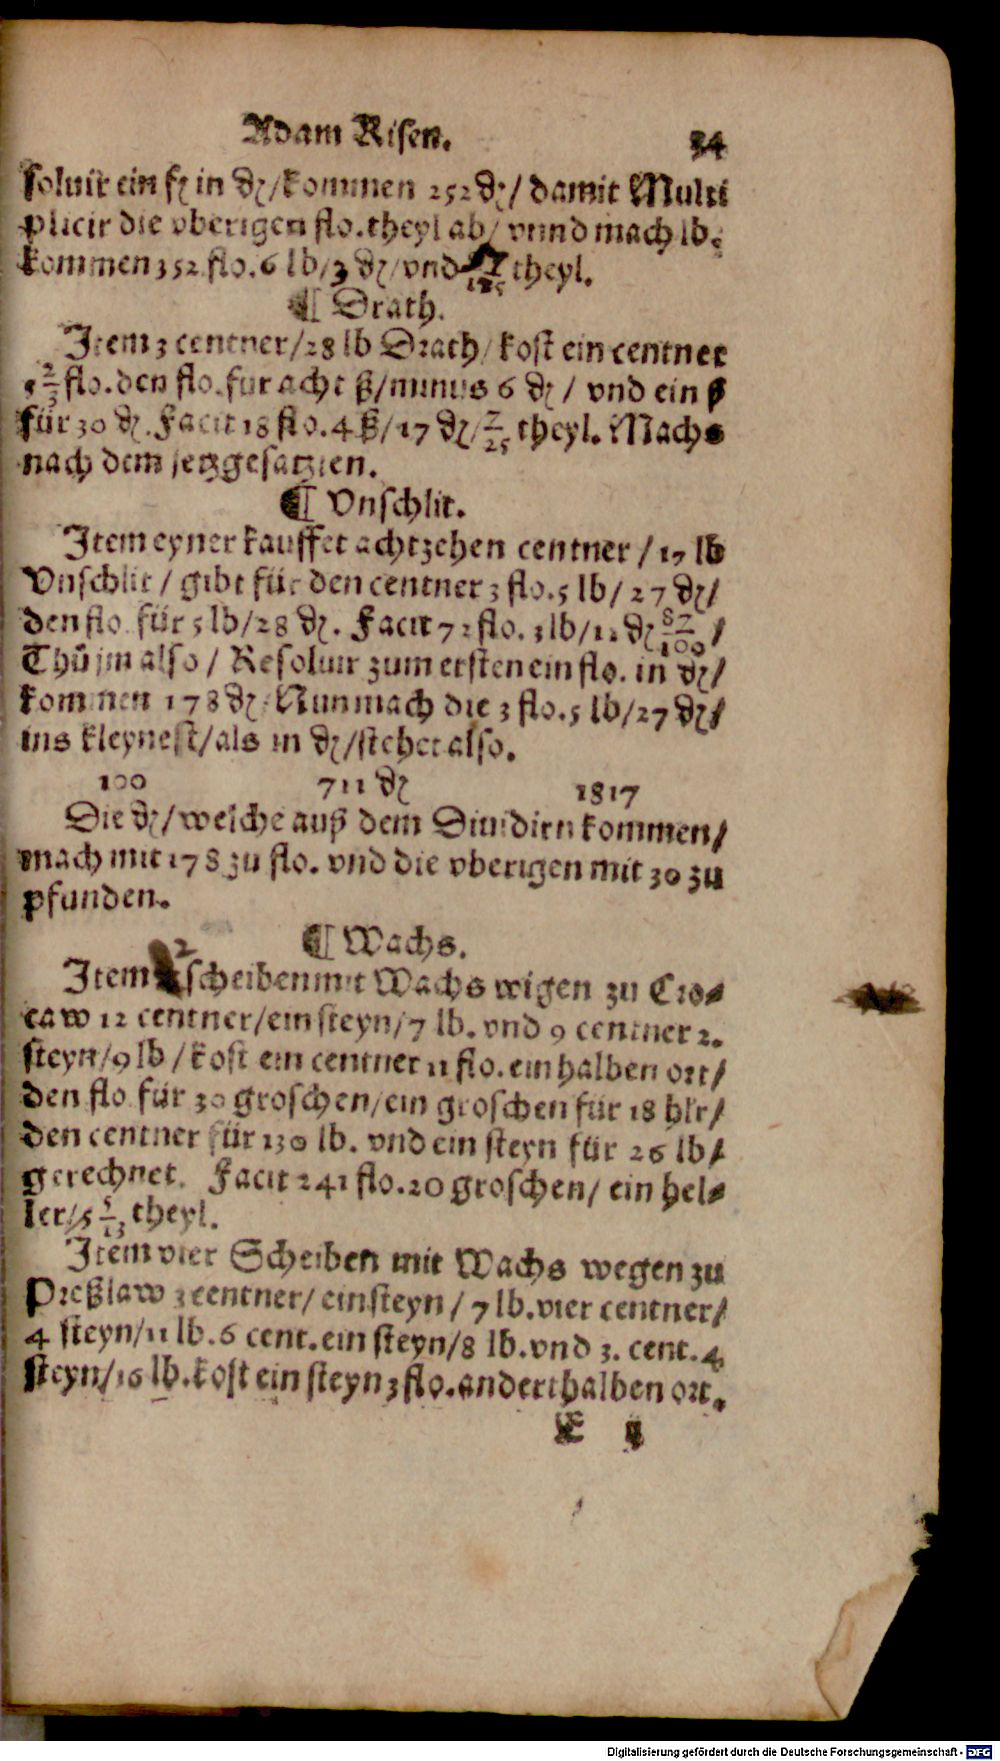 Adam Risen. 34
soluir ein fl in ₰/kommen 252 ₰/ damit Multi
plicir die vberigen flo. theyl ab/ vnnd mach lb.
kommen 352 flo. 6 lb/3 ₰/vnd theyl.
¶ Drath.
Item 3 centner/28 lb Drath/ kost ein centner
5 2/3 flo. den flo. für acht ß/minus 6 ₰/ vnd ein ß
für 30 ₰. Facit 18 flo. 4 ß/17 ₰/ 7/25 theyl. Machs
nach dem jetzgesatzten.
¶ Vnschlit.
Item eyner kauffet achtzehen centner/17 lb
Vnschlit/ gibt für den centner 3 flo. 5 lb/27 ₰/
den flo. für 5 lb/28 ₰. Facit 72 flo. 3 lb/12 ₰ 87/100/
Thů jm also/ Resoluir zum ersten ein flo. in ₰/
kommen 178 ₰/ Nun mach die 3 flo. 5 lb/27 ₰/
ins kleynest/als in ₰/stehet also.
100 711 ₰ 1817
Die ₰/welche auß dem Diuidirn kommen/
mach mit 178 zu flo. vnd die vberigen mit 30 zu
pfunden.
¶ Wachs.
Item 2 scheiben mit Wachs wigen zu Cro-
caw 12 centner/ein steyn/7 lb. vnd 9 centner 2.
steyn/9 lb/kost ein centner 11 flo. ein halben ort/
den flo. für 30 groschen/ein groschen für 18 hlr/
den centner für 130 lb. vnd ein steyn für 26 lb/
gerechnet. Facit 241 flo. 20 groschen/ ein hel-
ler/ 5/13 theyl.
Item vier Scheiben mit Wachs wegen zu
Preßlaw 3 centner/ ein steyn/7 lb. vier centner/
4 steyn/11 lb. 6 cent. ein steyn/8 lb. vnd 3. cent. 4
steyn/16 lb. kost ein steyn 3 flo. anderthalben ort.
E ij
Digitalisierung gefördert durch die Deutsche Forschungsgemeinschaft - DFG